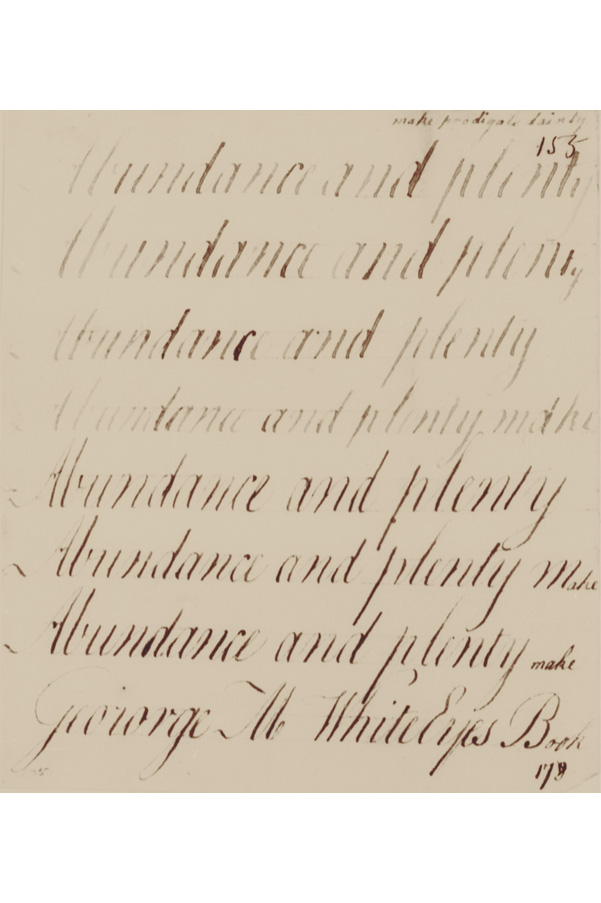 make prodigals dainty
155
Abundance and plenty
Abundance and plenty
Abundance and plenty
Abundance and plenty make
Abundance and plenty
Abundance and plenty make
Abundance and plenty make
Geiorge M White Eyes Book
178